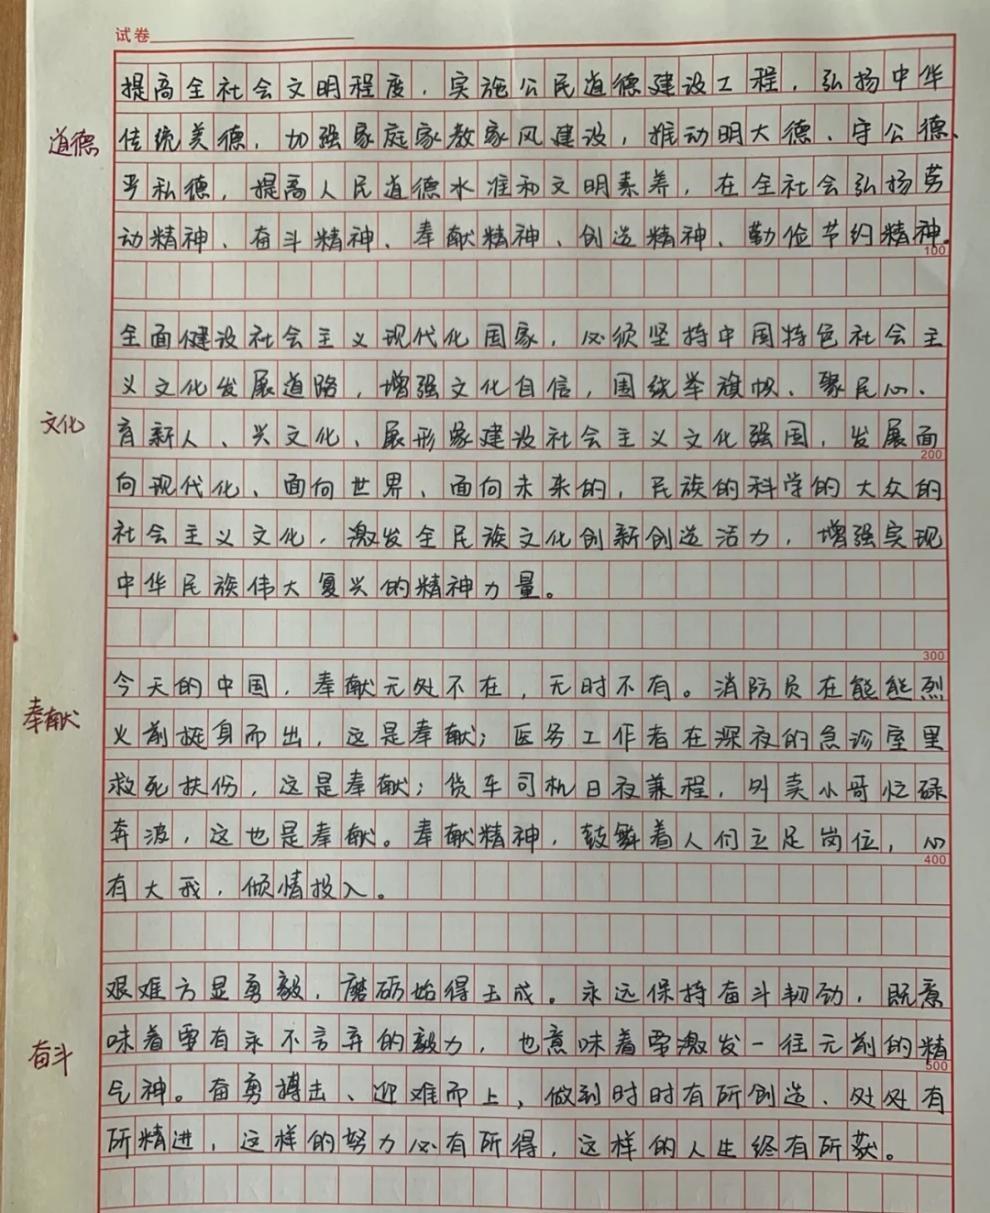 试卷
提高全社会文明程度，实施公民道德建设工程，弘扬中华
道德
传统美德，加强家庭家教家风建设，推动明大德、守公德、
严私德，提高人民道德水准和文明素养，在全社会弘扬劳
动精神、奋斗精神、奉献精神、创造精神、勤俭节约精神。
100
全面健设社会主义现代化国家，必须坚持中国特色社会主
义文化发展道路，增强文化自信，围绕举旗帜、聚民心、
文化
育新人、兴文化、展形象建设社会主义文化强国，发展面
200
向现代化、面向世界、面向未来的，民族的科学的大众的
社会主义文化，激发全民族文化创新创造活力，增强实现
中华民族伟大复兴的精神力量。
300
今天的中国，奉献无处不在，无时不有。消防员在熊熊烈
奉献
火前挺身而出，这是奉献；医务工作者在深夜的急诊室里
救死扶伤，这是奉献；货车司机日夜兼程，外卖小哥忙碌
奔波，这也是奉献。奉献精神，鼓舞着人们立足岗位，心
400
有大我，倾情投入。
艰难方显勇毅，磨砺始得玉成。永远保持奋斗韧劲，既意
味着要有永不言弃的毅力，也意味着要激发一往无前的精
奋斗
500
气神。奋勇搏击、迎难而上，做到时时有所创造、处处有
所精进，这样的努力必有所得，这样的人生终有所获。